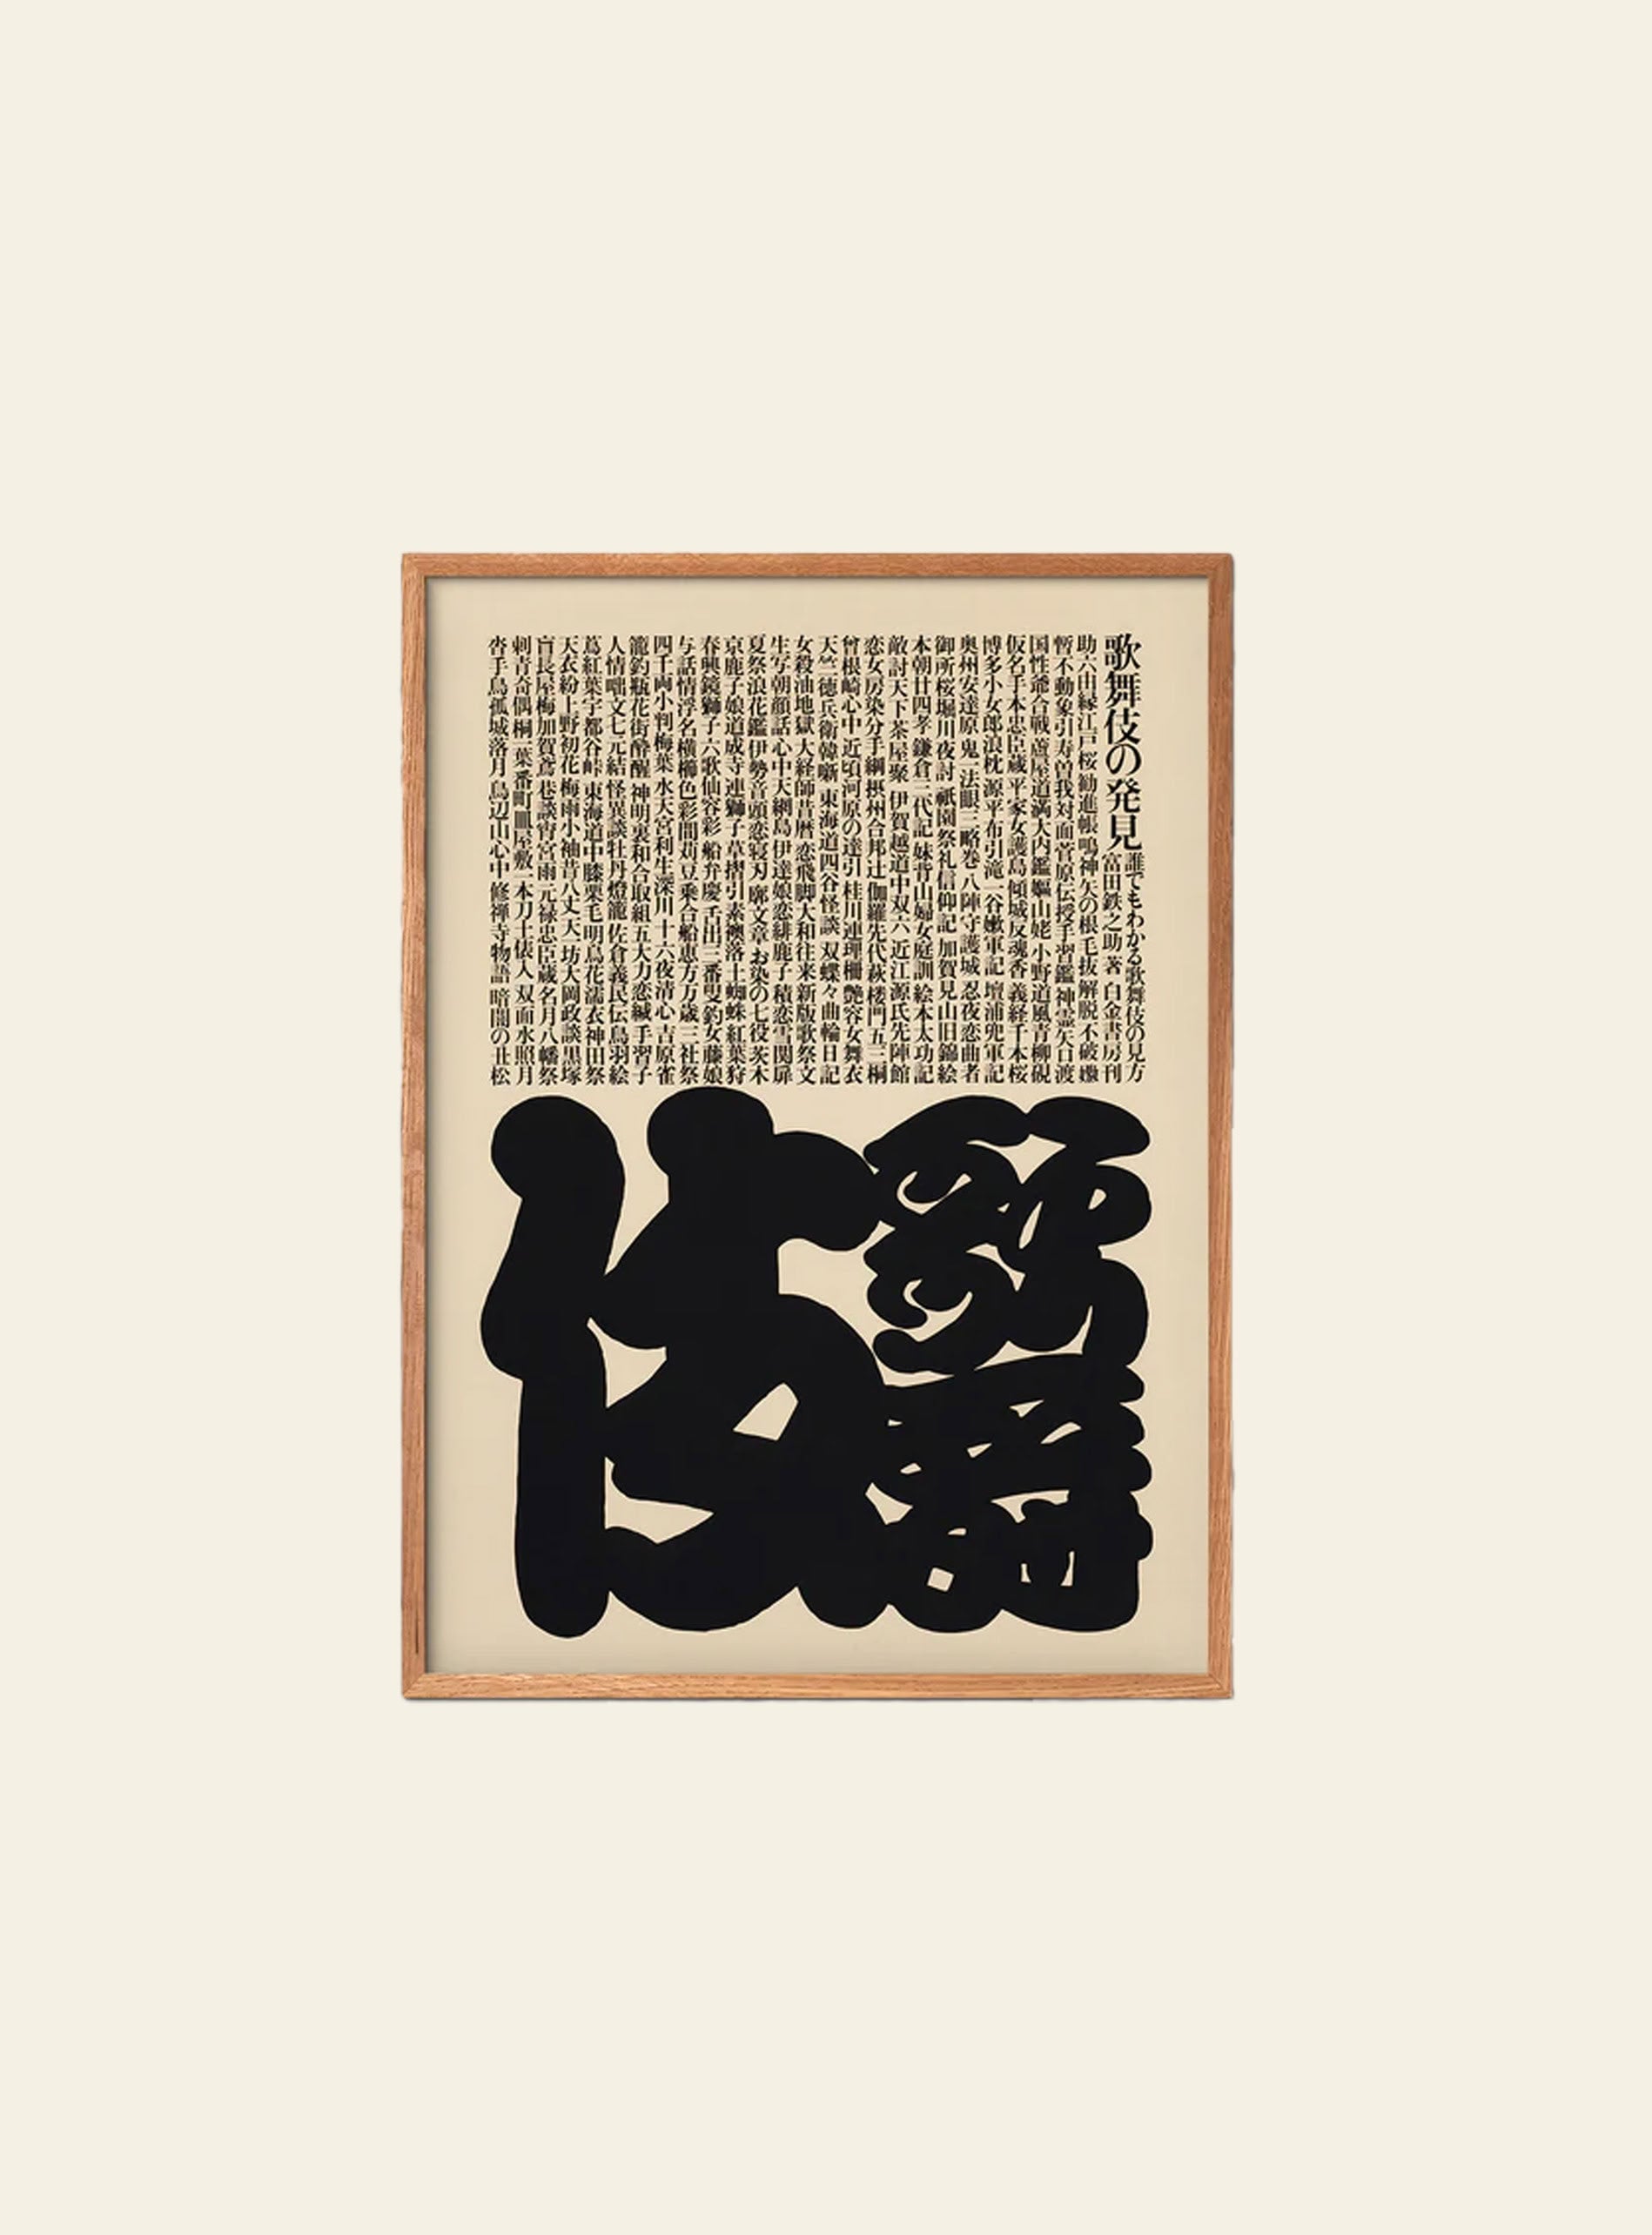 歌舞伎の発見
誰でもわかる歌舞伎の見方
富田鉄之助著 白金書房刊
助六由縁江戸桜 勧進帳 鳴神 矢の根 毛抜 解脱 不破 嫐
暫 不動 象引 寿曽我対面 菅原伝授手習鑑 神霊矢口渡
国性爺合戦 蘆屋道満大内鑑 嫗山姥 小野道風青柳硯
仮名手本忠臣蔵 平家女護島 傾城反魂香 義経千本桜
博多小女郎浪枕 源平布引滝 一谷嫩軍記 壇浦兜軍記
奥州安達原 鬼一法眼三略巻 八陣守護城 忍夜恋曲者
御所桜堀川夜討 祇園祭礼信仰記 加賀見山旧錦絵
本朝廿四孝 鎌倉三代記 妹背山婦女庭訓 絵本太功記
敵討天下茶屋聚 伊賀越道中双六 近江源氏先陣館
恋女房染分手綱 摂州合邦辻 伽羅先代萩 楼門五三桐
曾根崎心中 近頃河原の達引 桂川連理柵 艶容女舞衣
天竺徳兵衛韓噺 東海道四谷怪談 双蝶々曲輪日記
女殺油地獄 大経師昔暦 恋飛脚大和往来 新版歌祭文
生写朝顔話 心中天網島 伊達娘恋緋鹿子 積恋雪関扉
夏祭浪花鑑 伊勢音頭恋寝刃 廓文章 お染の七役 茨木
京鹿子娘道成寺 連獅子 草摺引 素襖落 土蜘蛛 紅葉狩
春興鏡獅子 六歌仙容彩 船弁慶 舌出三番叟 釣女 藤娘
与話情浮名横櫛 色彩間苅豆 乗合船恵方万歳 三社祭
四千両小判梅葉 水天宮利生深川 十六夜清心 吉原雀
籠釣瓶花街酔醒 神明裏和合取組 五大力恋緘 手習子
人情噺文七元結 怪異談牡丹燈籠 佐倉義民伝 鳥羽絵
蔦紅葉宇都谷峠 東海道中膝栗毛 明烏花濡衣 神田祭
天衣紛上野初花 梅雨小袖昔八丈 天一坊大岡政談 黒塚
盲長屋梅加賀鳶 巷談宵宮雨 元禄忠臣蔵 名月八幡祭
刺青奇偶 桐一葉 番町皿屋敷 一本刀土俵入 双面水照月
沓手鳥孤城落月 鳥辺山心中 修禅寺物語 暗闇の丑松
歌舞伎